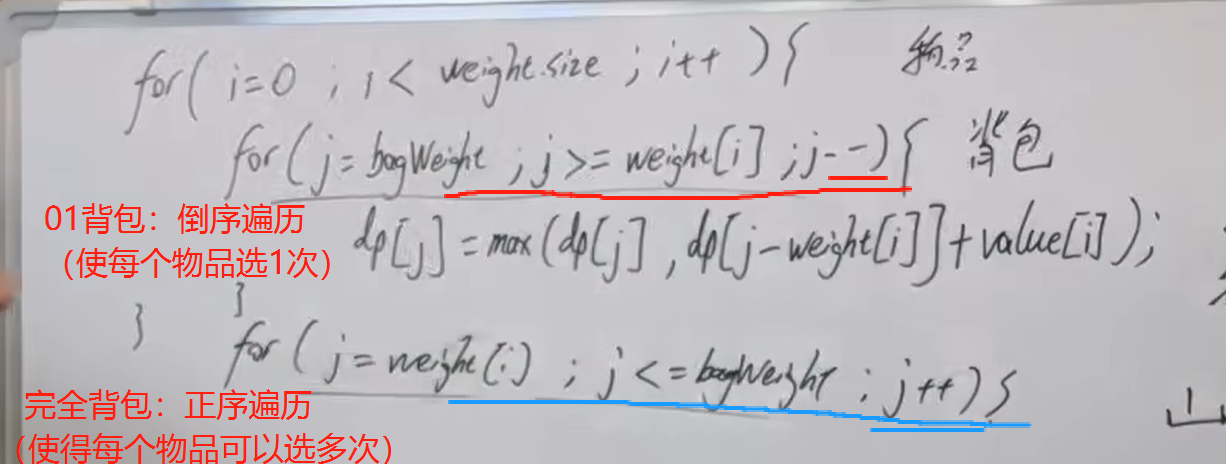 for( i=0 ; i< weight.size ; i++ ){ 物品
for( j=bagWeight ; j>=weight[i] ; j--){ 背包
01背包：倒序遍历
（使每个物品选1次）
dp[j]=max(dp[j] , dp[j-weight[i]]+value[i]);
}
}
for( j=weight(i) ; j<=bagWeight ; j++){
完全背包：正序遍历
（使得每个物品可以选多次）